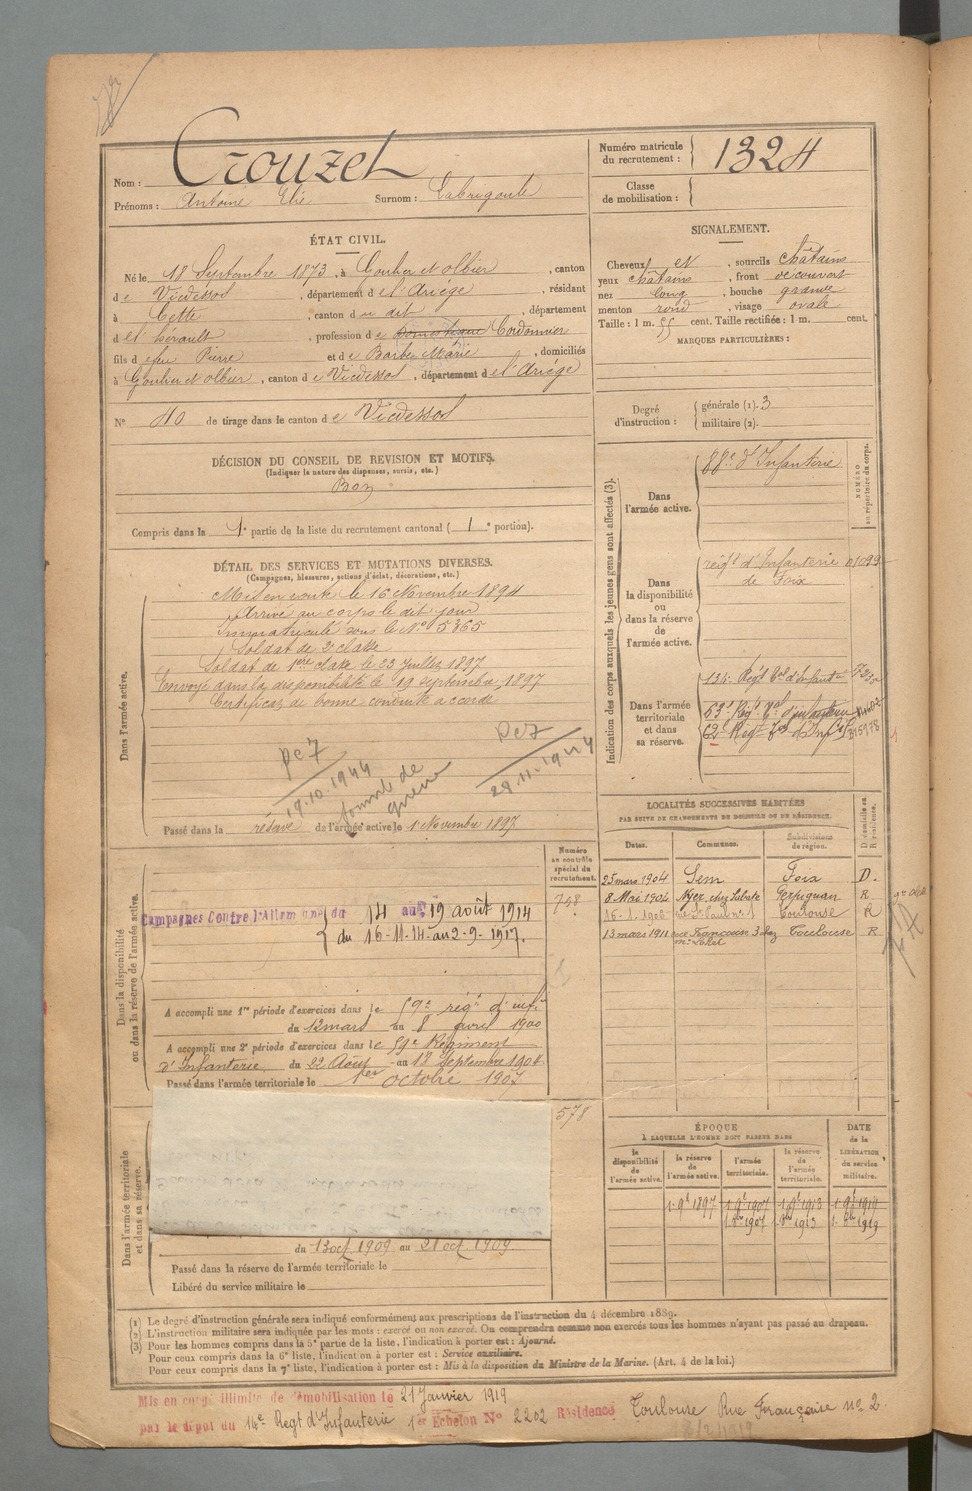 Nom : Crouzet
Prénoms : Antoine Elie Surnom : Labregoule
Numéro matricule du recrutement : 1324
Classe de mobilisation :
ÉTAT CIVIL.
Né le 18 Septembre 1873, à Goulier et Olbier, canton
de Vicdessos, département de l'Ariège, résidant
à Cette, canton du dit, département
de l'hérault, profession de Domestique Cordonnier
fils de feu Pierre et de Barbe Marie, domiciliés
à Goulier et Olbier, canton de Vicdessos, département de l'Ariège
N° 40 de tirage dans le canton de Vicdessos
SIGNALEMENT.
Cheveux et, sourcils châtains
yeux châtains, front découvert
nez long, bouche grande
menton rond, visage ovale
Taille : 1 m. 55 cent. Taille rectifiée : 1 m. cent.
MARQUES PARTICULIÈRES :
Degré d'instruction : générale (1). 3
militaire (2).
DÉCISION DU CONSEIL DE REVISION ET MOTIFS.
(Indiquer la nature des dispenses, sursis, etc.)
Bon
Compris dans la 1e partie de la liste du recrutement cantonal ( 1e portion).
DÉTAIL DES SERVICES ET MUTATIONS DIVERSES.
(Campagnes, blessures, actions d'éclat, décorations, etc.)
Dans l'armée active.
Mis en route le 16 Novembre 1894
Arrivé au corps le dit jour
Immatriculé sous le N° 5365
Soldat de 2e classe
Soldat de 1ère classe le 23 Juillet 1897
Envoyé dans la disponibilité le 19 septembre 1897
Certificat de bonne conduite accordé
19.10.1944
29.11.1944
Passé dans la réserve de l'armée active le 1 Novembre 1897
Indication des corps auxquels les jeunes gens sont affectés (3).
NUMÉRO au répertoire du corps.
Dans l'armée active. 88e d'Infanterie
Dans la disponibilité ou dans la réserve de l'armée active. régt d'Infanterie de Foix 01099
Dans l'armée territoriale et dans sa réserve. 134e Régt Tal d'Infantie
63e Régt Tal d'infanterie
62e Régt Tal d'Infie
LOCALITÉS SUCCESSIVES HABITÉES
PAR SUITE DE CHANGEMENTS DE DOMICILE OU DE RÉSIDENCE.
Dates. Communes. Subdivisions de région. D. domicile ou R. résidence.
25 mars 1904 Sem Foix D.
8 Mai 1904 Nyer, chez Labate Perpignan R
16.1.1908 rue St Paul n° 1 Toulouse R
13 mars 1911 rue Française 3 chez Toulouse R
Numéro au contrôle spécial du recrutement.
748
Dans la disponibilité ou dans la réserve de l'armée active.
Campagnes Contre l'Allemagne du 14 au 19 août 1914
du 16-11-14 au 2-9-1917.
A accompli une 1re période d'exercices dans le 59e régt d'infie
du 12 mars au 8 avril 1900
A accompli une 2e période d'exercices dans le 59e Régiment
d'Infanterie du 22 Août au 18 Septembre 1904
Passé dans l'armée territoriale le 1er octobre 1907
578
Dans l'armée territoriale et dans sa réserve.
du 13 oct 1909 au 21 oct 1909
Passé dans la réserve de l'armée territoriale le
Libéré du service militaire le
ÉPOQUE
À LAQUELLE L'HOMME DOIT PASSER DANS
la disponibilité de l'armée active. la réserve de l'armée active. l'armée territoriale. la réserve de l'armée territoriale. DATE de la LIBÉRATION du service militaire.
1.9e 1897 1.9e 1907 1.9e 1913 1.9e 1919
1.8bre 1907 1.8bre 1913 1.8bre 1919
(1) Le degré d'instruction générale sera indiqué conformément aux prescriptions de l'instruction du 4 décembre 1889.
(2) L'instruction militaire sera indiquée par les mots : exercé ou non exercé. On comprendra comme non exercés tous les hommes n'ayant pas passé au drapeau.
(3) Pour les hommes compris dans la 5e partie de la liste, l'indication à porter est : Ajourné.
Pour ceux compris dans la 6e liste, l'indication à porter est : Service auxiliaire.
Pour ceux compris dans la 7e liste, l'indication à porter est : Mis à la disposition du Ministre de la Marine. (Art. 4 de la loi.)
Mis en congé illimité de démobilisation le 21 Janvier 1919
par le dépôt du 14e Regt d'Infanterie 1er Echelon N° 2202 Résidence Toulouse Rue Française n° 2